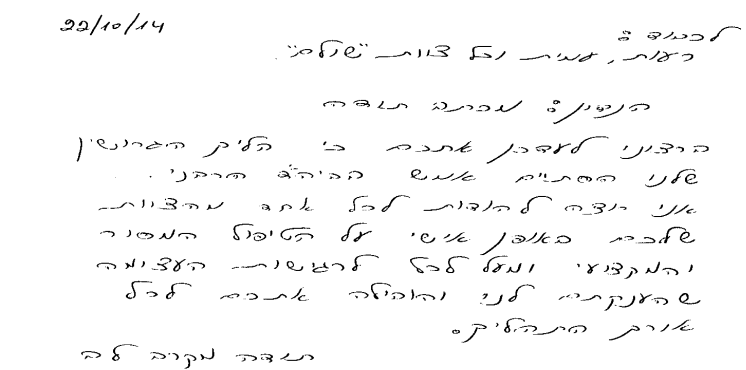 22/10/14
לכבוד:
רעות, עמית וכל צוות "שולם".
הנדון: מכתב תודה
הרצוני לעדכן אתכם כי הליך הגרושין
שלנו הסתיים אמש בביה"ד הרבני.
אני רוצה להודות לכל אחד מהצוות
שלכם באופן אישי על הטיפול המסור
והמקצועי ומעל לכל לרגישות העצומה
שהענקתם לנו והובילה אתכם לכל
אורך התהליך.
תודה מקרב לב